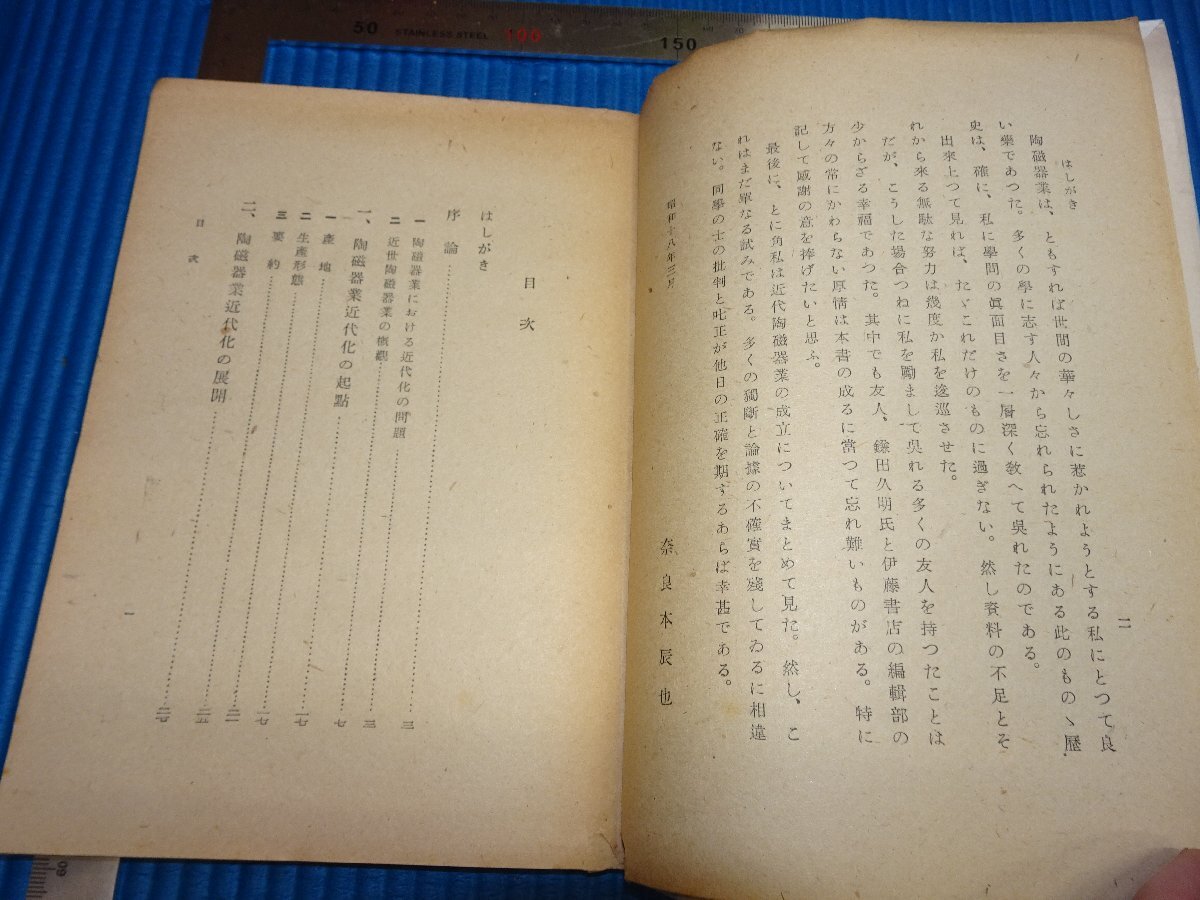 50 STAINLESS STEEL 100 150
はしがき
二
陶磁器業は、ともすれば世間の華々しさに惹かれようとする私にとつて良
い藥であつた。多くの學に志す人々から忘れられたようにある此のものゝ歷
史は、確に、私に學問の眞面目さを一層深く教へて吳れたのである。
出來上つて見れば、たゞこれだけのものに過ぎない。然し資料の不足とそ
れから來る無駄な努力は幾度か私を逡巡させた。
だが、こうした場合つねに私を勵まして吳れる多くの友人を持つたことは
少からざる幸福であつた。其中でも友人、鎌田久明氏と伊藤書店の編輯部の
方々の常にかわらない厚情は本書の成るに當つて忘れ難いものがある。特に
記して感謝の意を捧げたいと思ふ。
最後に、とに角私は近代陶磁器業の成立についてまとめて見た。然し、こ
れはまだ單なる試みである。多くの獨斷と論據の不確實を殘してゐるに相違
ない。同學の士の批判と叱正が他日の正確を期するあらば幸甚である。
昭和十八年三月
奈良本辰也
目次
はしがき
序論
一 陶磁器業における近代化の問題 三
二 近世陶磁器業の槪觀 三
一、陶磁器業近代化の起點 七
一 產地 一七
二 生產形態
三 要約
二、陶磁器業近代化の展開
目次
一